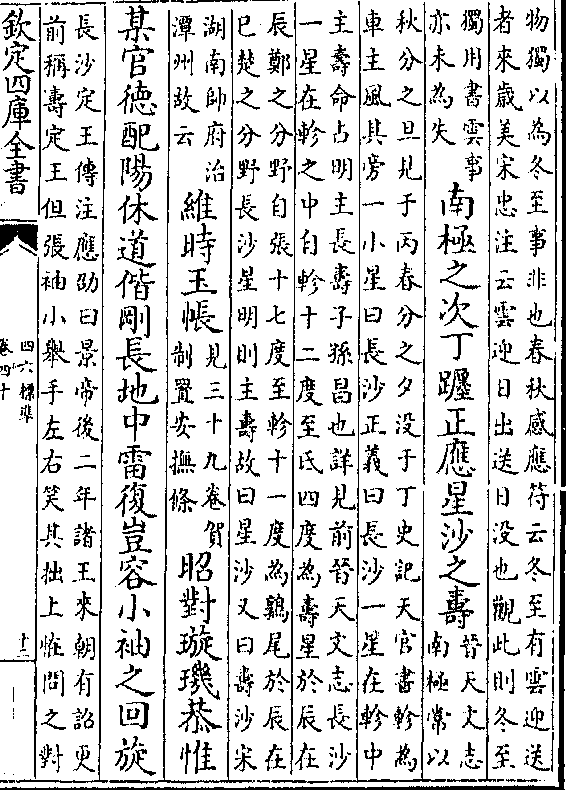 物獨以為冬至事非也春秋感應符云冬至有雲迎送
者來歲美宋忠注云雲迎日出送日没也觀此則冬至
獨用書雲事
亦未為失
南極之次丁躔正應星沙之壽
晉天文志
南極常以
秋分之旦見于丙春分之夕没于丁史記天官書軫為
車主風其旁一小星曰長沙正義曰長沙一星在軫中
主壽命占明主長壽子孫昌也詳見前晉天文志長沙
一星在軫之中自軫十二度至氐四度為壽星於辰在
辰鄭之分野自張十七度至軫十一度為鶉尾於辰在
巳楚之分野長沙星明則主壽故曰星沙又曰壽沙宋
湖南帥府治
潭州故云
維時玉帳
見三十九卷賀
制置安撫條
昭對璇璣恭惟
某官德配陽休道偕剛長地中雷復豈容小袖之回旋
長沙定王傳注應劭曰景帝後二年諸王來朝有詔更
前稱壽定王但張袖小舉手左右笑其拙上恠問之對
欽定四庫全書
四六標準
卷四十
十三